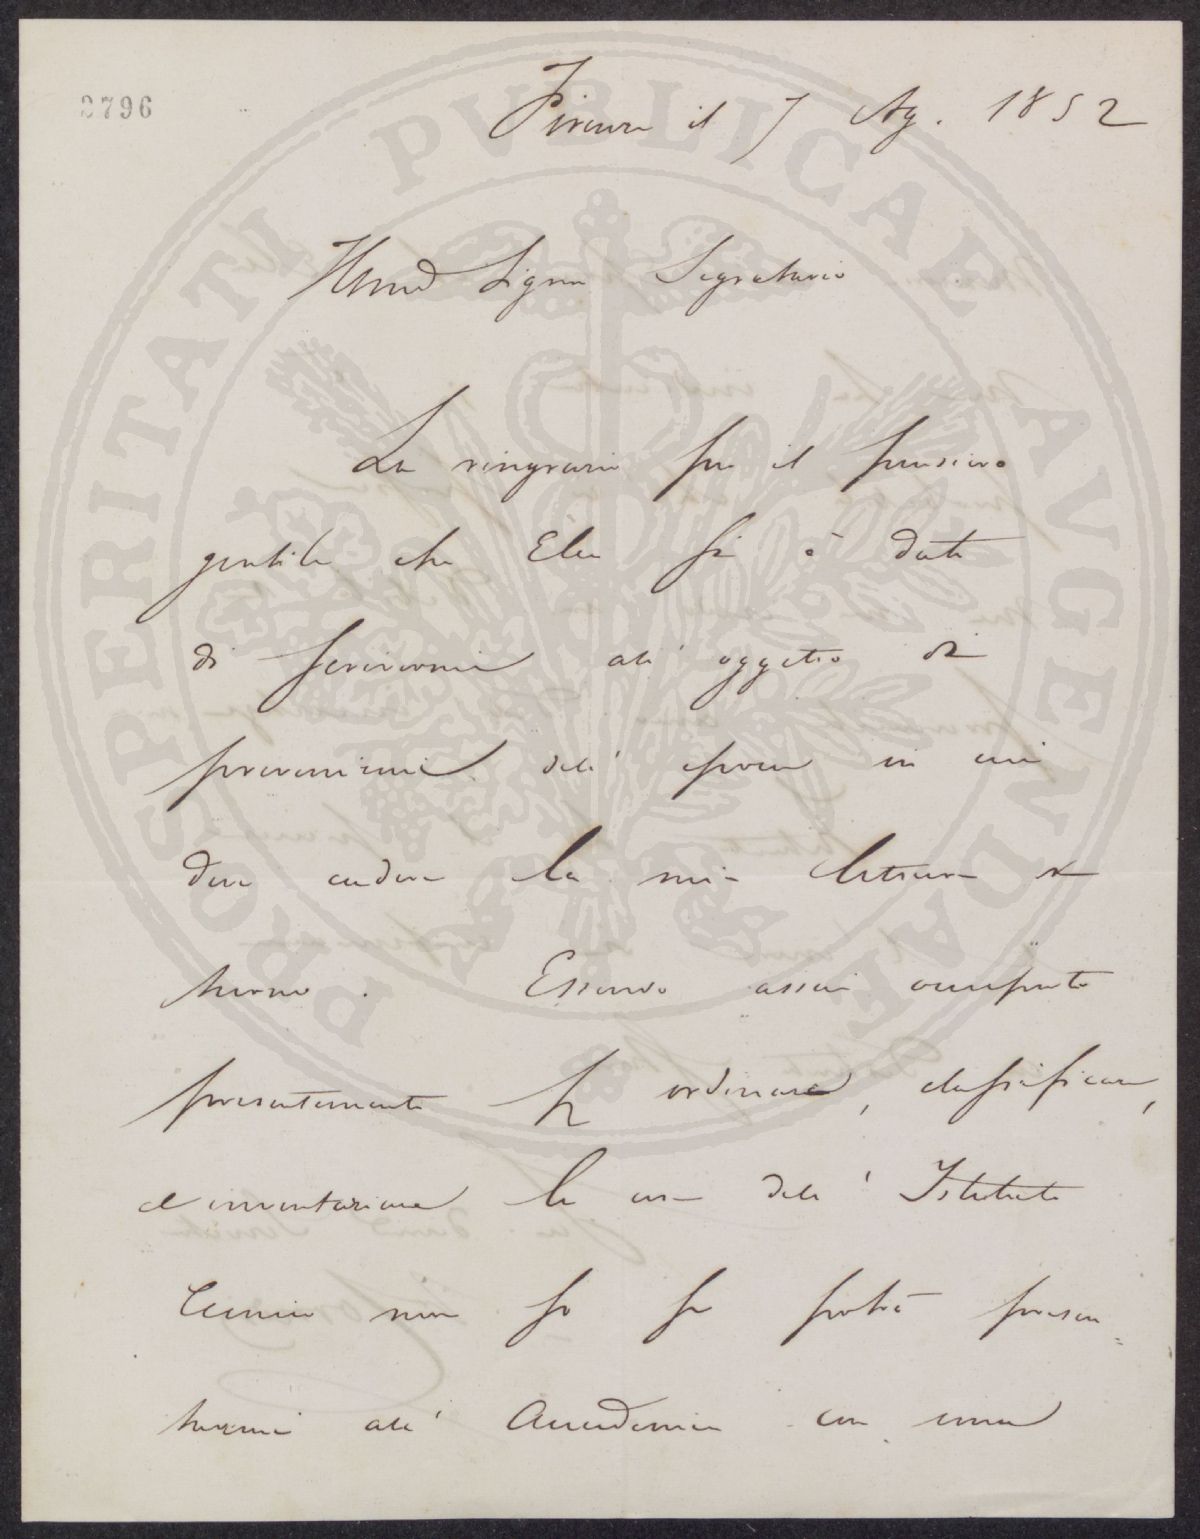 2796
Firenze il 7 Ag. 1852
Illmo Signor Segretario
La ringrazio per il pensiero
gentile che Ella si è data
di scrivermi all' oggetto di
prevenirmi dell' epoca in cui
deve cadere la mia lettura di
turno. Essendo assai occupato
presentemente per ordinare, classificare,
e inventariare le cose dell' Istituto
Tecnico non so se potrò presen=
tarmi all' Accademia con una
PROSPERITATI PVBLICAE AVGENDAE